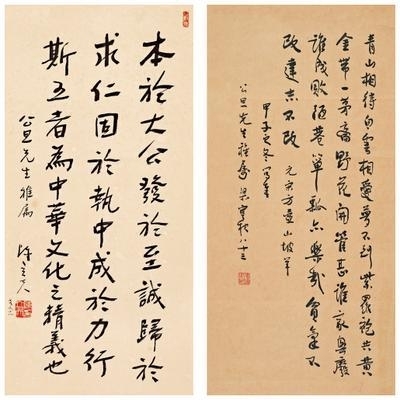 本於大公發於至誠歸於
求仁固於執中成於力行
斯五者為中華文化之精義也
公旦先生雅屬
陳立夫
青山相待白雲相愛夢不到紫羅袍共黃
金帶一茅齋野花開管甚誰家興廢
誰成敗陋巷單瓢亦樂哉貧氣不
改達志不改 元宋方壺山坡羊
甲子之冬寫奉
公旦先生雅屬 梁實秋 八十三